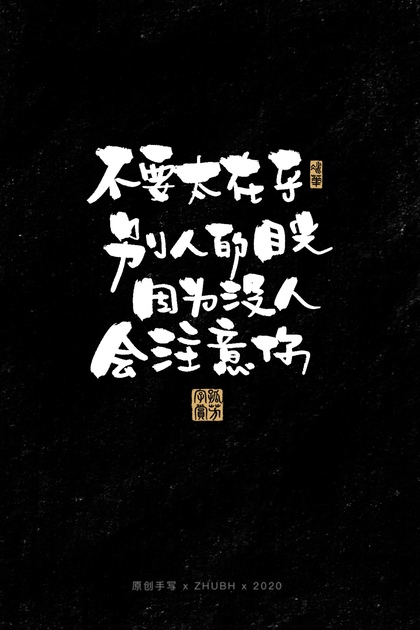 不要太在乎
别人的目光
因为没人
会注意你
孤芳
字賞
原创手写 x ZHUBH x 2020